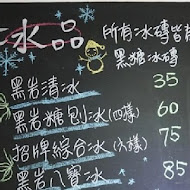 水品
所有冰磚皆有
黑糖冰磚
黑岩清冰 35
黑岩糖刨冰(四樣) 60
招牌綜合冰(六樣) 75
黑岩八寶冰 85